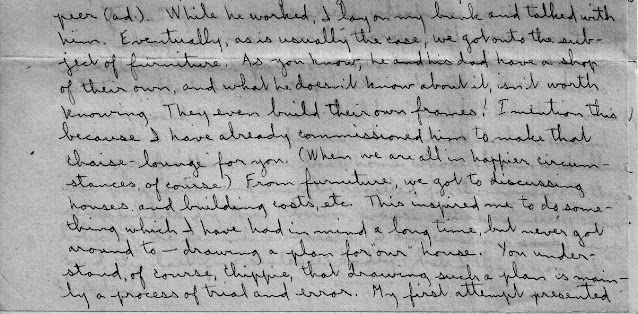 peer (ad.). While he worked, I lay on my bunk and talked with
him. Eventually, as is usually the case, we got onto the sub-
ject of furniture. As you know, he and his dad have a shop
of their own, and what he doesn't know about it, isn't worth
knowing. They even build their own frames! I mention this
because I have already commissioned him to make that
chaise-lounge for you. (When we are all in happier circum-
stances, of course.) From furniture, we got to discussing
houses and building costs, etc. This inspired me to do some-
thing which I have had in mind a long time, but never got
around to — drawing a plan for "our" house. You under-
stand, of course, Chippie, that drawing such a plan is main-
ly a process of trial and error. My first attempt presented